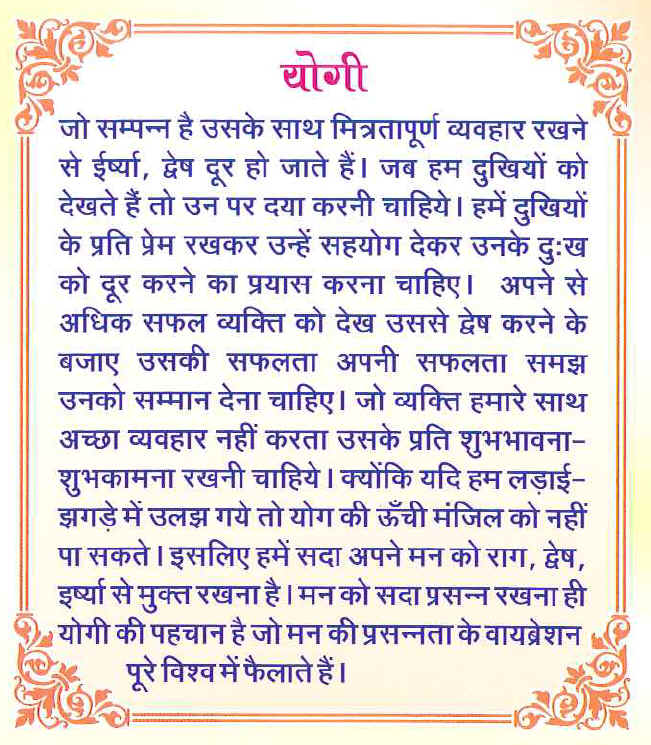 योगी
जो सम्पन्न है उसके साथ मित्रतापूर्ण व्यवहार रखने
से ईर्ष्या, द्वेष दूर हो जाते हैं। जब हम दुखियों को
देखते हैं तो उन पर दया करनी चाहिये। हमें दुखियों
के प्रति प्रेम रखकर उन्हें सहयोग देकर उनके दुःख
को दूर करने का प्रयास करना चाहिए। अपने से
अधिक सफल व्यक्ति को देख उससे द्वेष करने के
बजाए उसकी सफलता अपनी सफलता समझ
उनको सम्मान देना चाहिए। जो व्यक्ति हमारे साथ
अच्छा व्यवहार नहीं करता उसके प्रति शुभभावना-
शुभकामना रखनी चाहिये। क्योंकि यदि हम लड़ाई-
झगड़े में उलझ गये तो योग की ऊँची मंजिल को नहीं
पा सकते। इसलिए हमें सदा अपने मन को राग, द्वेष,
इर्ष्या से मुक्त रखना है। मन को सदा प्रसन्न रखना ही
योगी की पहचान है जो मन की प्रसन्नता के वायब्रेशन
पूरे विश्व में फैलाते हैं।